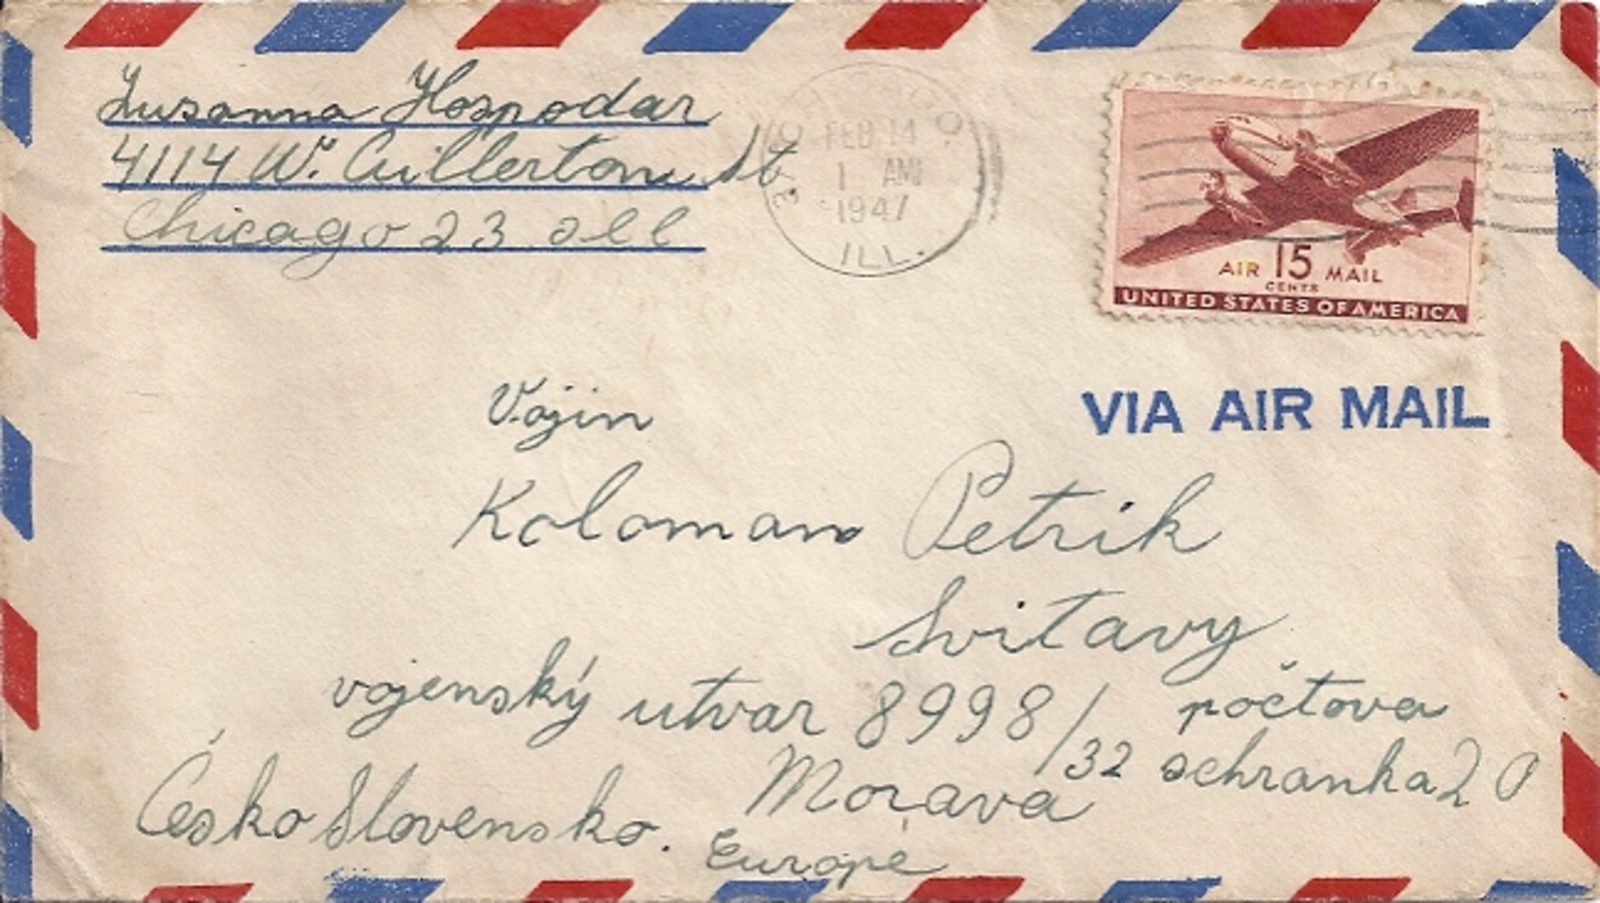 Zusanna Hospodar
4114 W. Cullerton St.
Chicago 23 Ill
CHICAGO
FEB 14
1 AM
1947
ILL.
AIR 15 MAIL
CENTS
UNITED STATES OF AMERICA
VIA AIR MAIL
Vojin
Koloman Petrik
Svitavy
vojenský utvar 8998/32 počtova
schranka 2
Morava
Česko Slovensko.
Europe